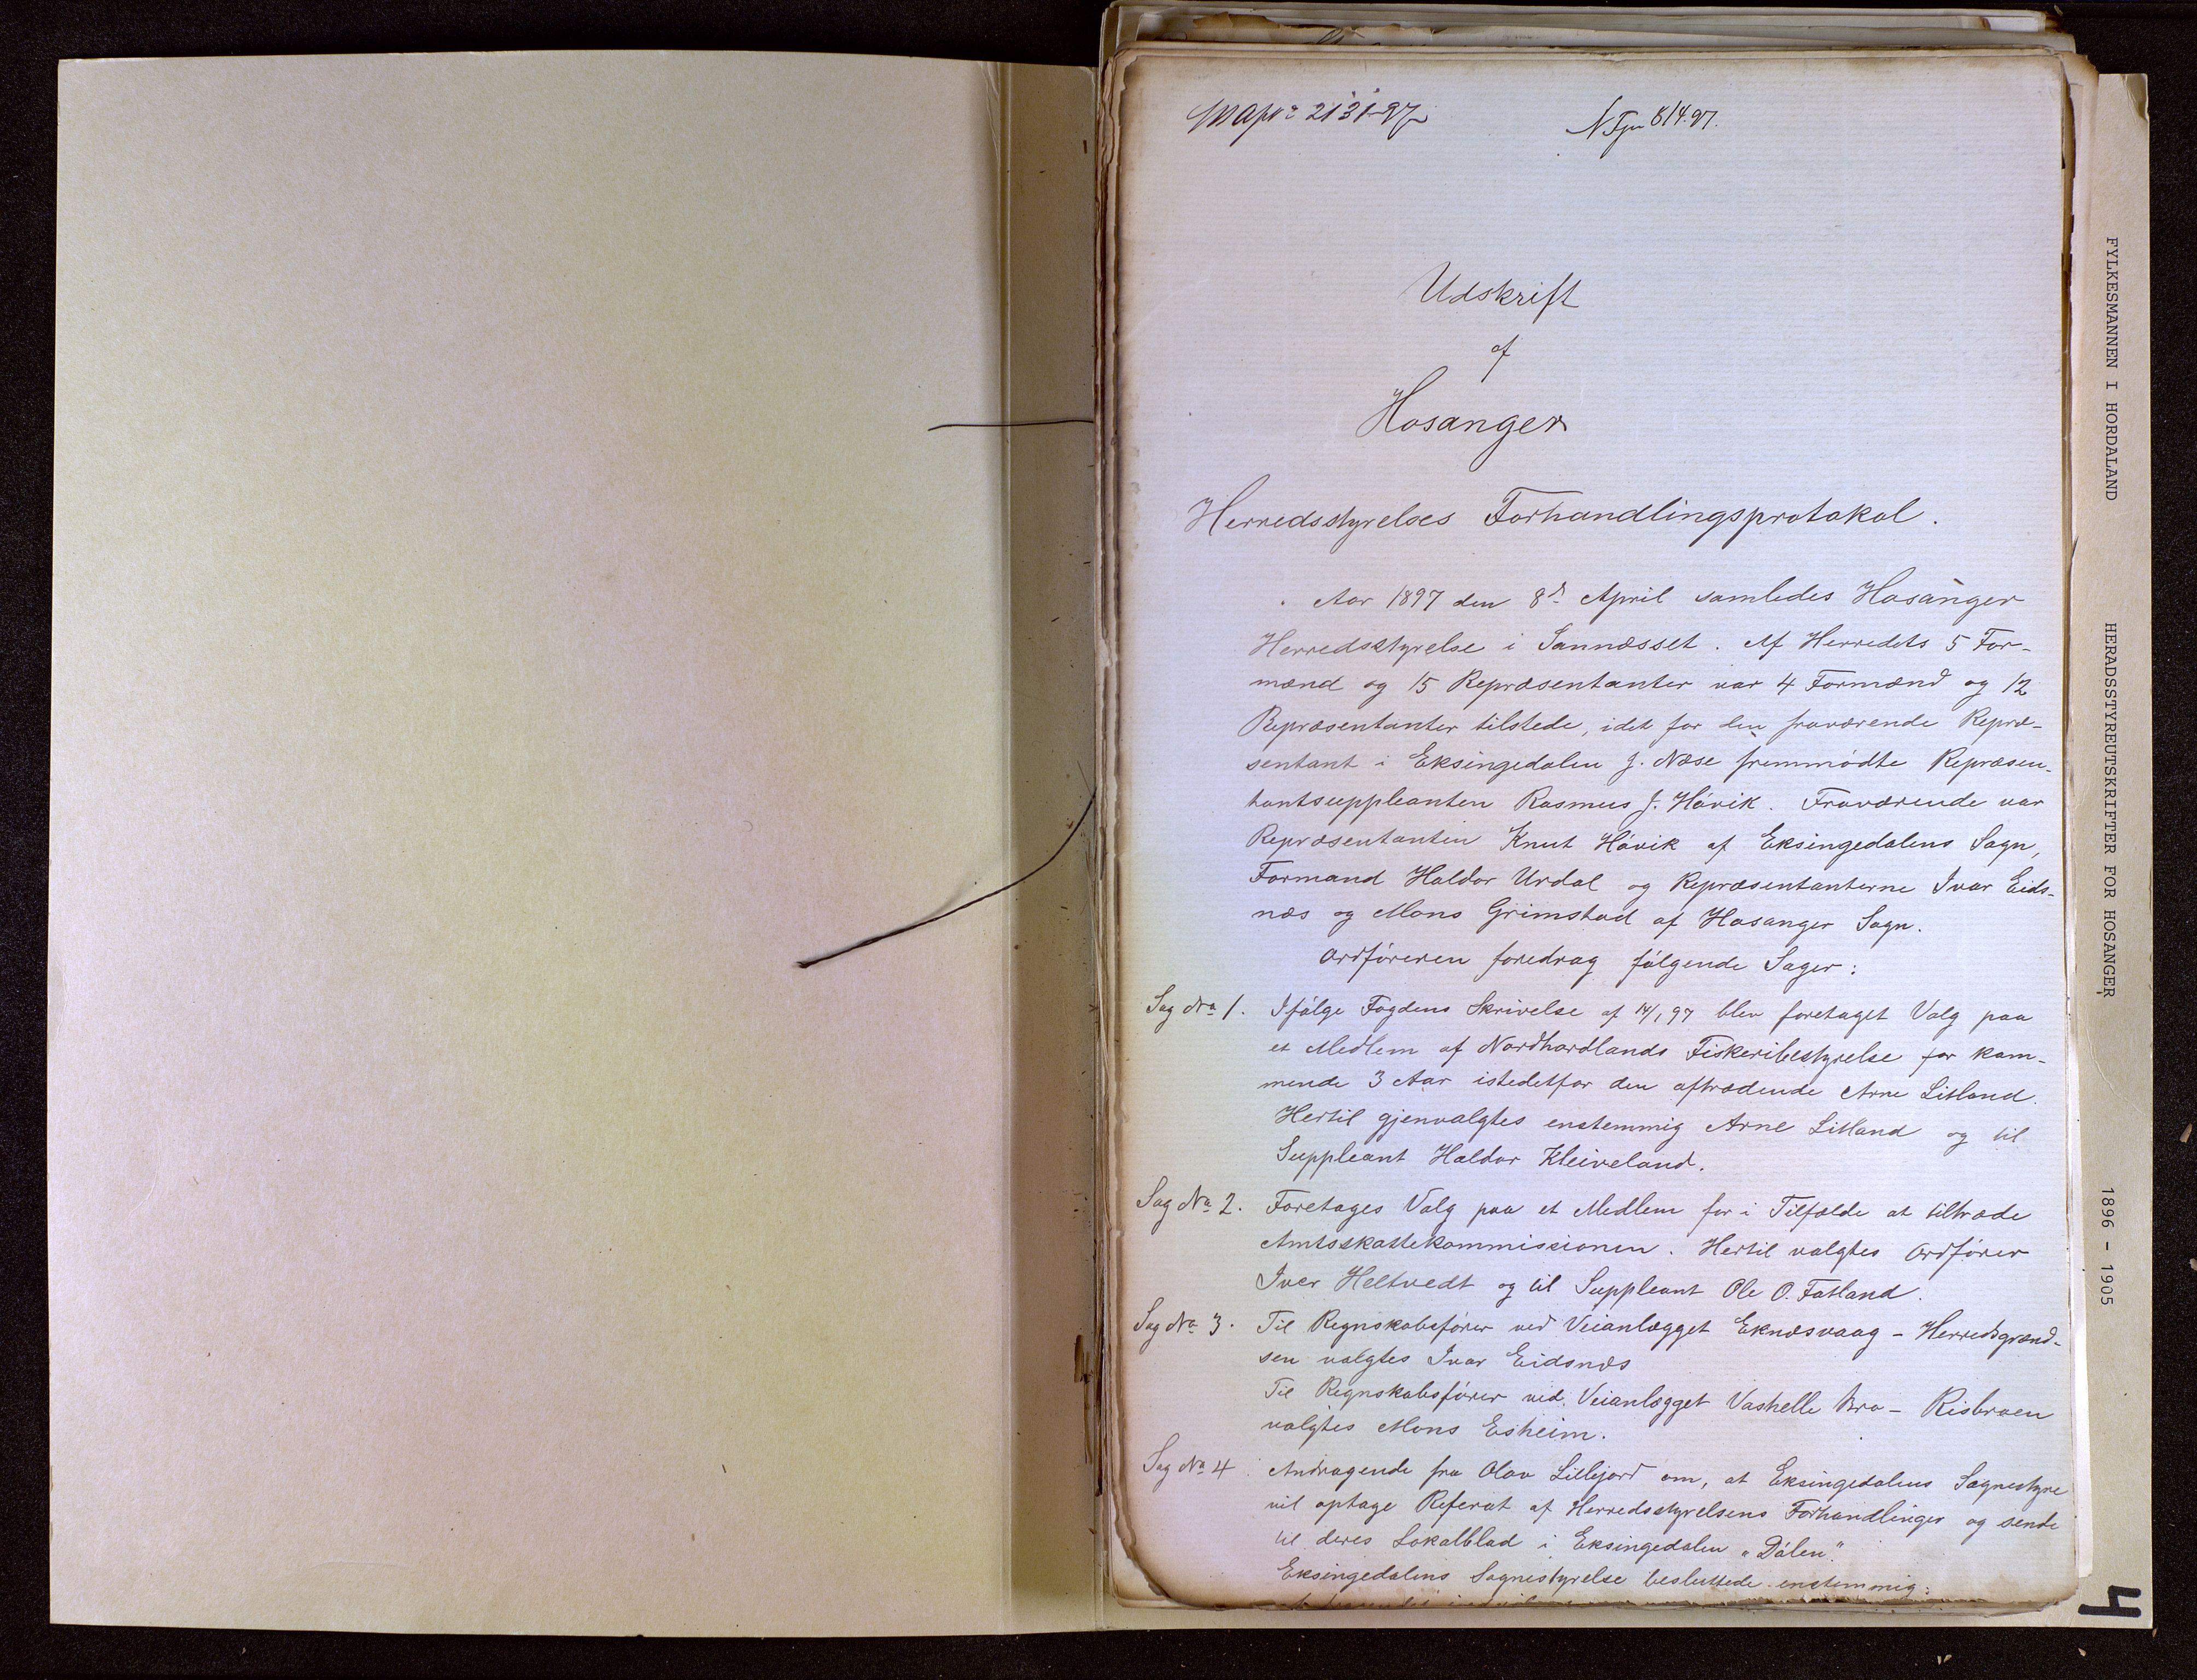 2131-97
8/4.97.
Udskrift
af
Hosanger
Herredsstyrelses Forhandlingsprotokol.
Aar 1897 den 8d April samledes Hosanger
Herredsstyrelse i Sannæsset. Af Herredets 5 For-
mænd og 15 Repræsentanter var 4 Formænd og 12
Repræsentanter tilstede, idet for den fraværende Repræ-
sentant i Eksingedalen J. Næse fremmødte Repræsen-
tantsuppleanten Rasmus J. Høvik. Fraværende var
Repræsentanten Knut Høvik af Eksingedalens Sogn,
Formand Haldor Urdal og Repræsentanterne Ivar Eids-
næs og Mons Grimstad af Hosanger Sogn.
Ordføreren foredrog følgende Sager:
Sag No 1. Ifølge Fogdens Skrivelse af 14/1 97 blev foretaget Valg paa
et Medlem af Nordhordlands Fiskeribestyrelse for kom-
mende 3 Aar istedetfor den aftrædende Arne Litland.
Hertil gjenvalgtes enstemmig Arne Litland og til
Suppleant Haldor Kleiveland.
Sag No 2. Foretages Valg paa et Medlem for i Tilfælde at tiltræde
Amtsskattekommissionen. Hertil valgtes Ordfører
Iver Heltvedt og til Suppleant Ole O. Fatland.
Sag No 3. Til Regnskabsfører ved Veianlægget Eknæsvaag - Herredsgrænd-
sen valgtes Ivar Eidsnæs
Til Regnskabsfører ved Veianlægget Vashelle Bro - Risbroen
valgtes Mons Esheim.
Sag No 4. Andragende fra Olav Lillejord om, at Eksingedalens Sognestyre
vil optage Referat af Herredsstyrelsens Forhandlinger og sende
til deres Lokalblad i Eksingedalen „Dølen".
Eksingedalens Sognestyrelse besluttede enstemmig:
FYLKESMANNEN I HORDALAND HERADSSTYREUTSKRIFTER FOR HOSANGER 1896 - 1905
4